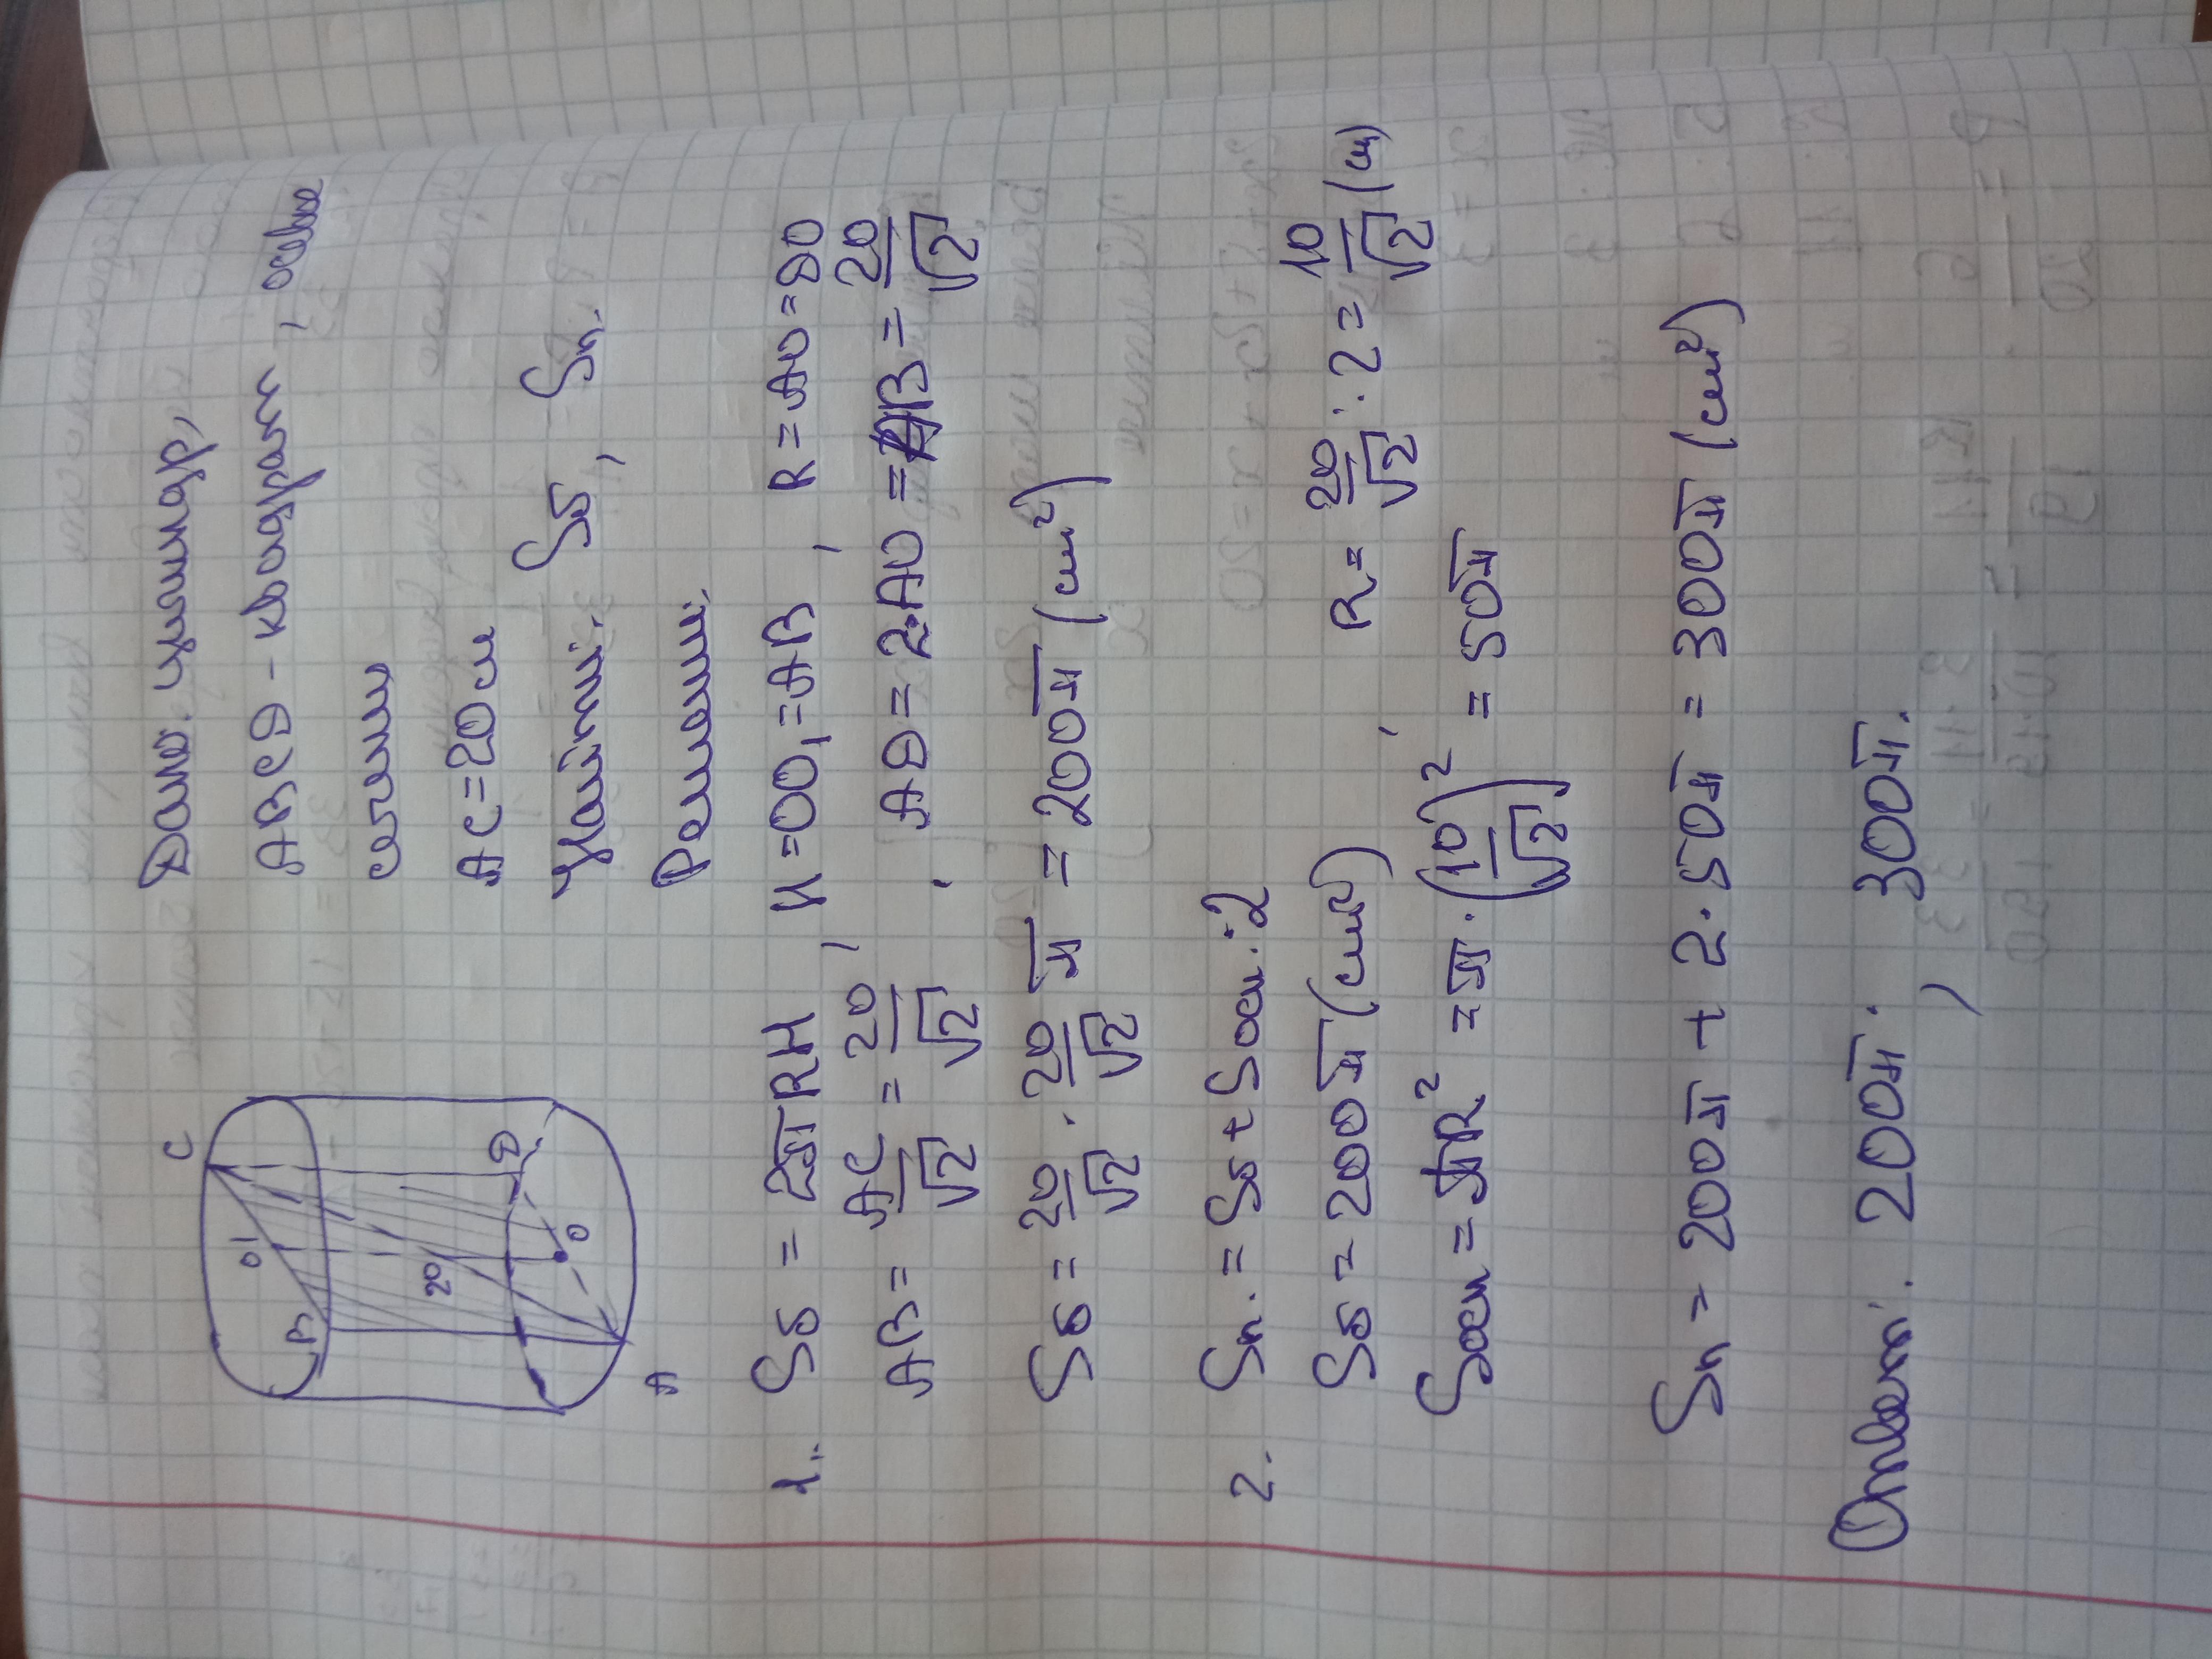 C
O1
B
20
D
O
A
Дано: цилиндр,
ABCD - квадрат, осевое
сечение
AC = 20 см
Найти: Sб, Sп.
Решение:
1. Sб = 2πRH, H = OO₁ = AB, R = AO = DO
AB = AC/√2 = 20/√2, AD = 2·AO = AB = 20/√2
Sб = 20/√2 · 20/√2 π = 200π (см²)
2. Sп. = Sб + Sосн. · 2
Sб = 200π (см²), R = 20/√2 : 2 = 10/√2 (см)
Sосн = πR² = π · (10/√2)² = 50π
Sп = 200π + 2 · 50π = 300π (см²)
Ответ: 200π, 300π.